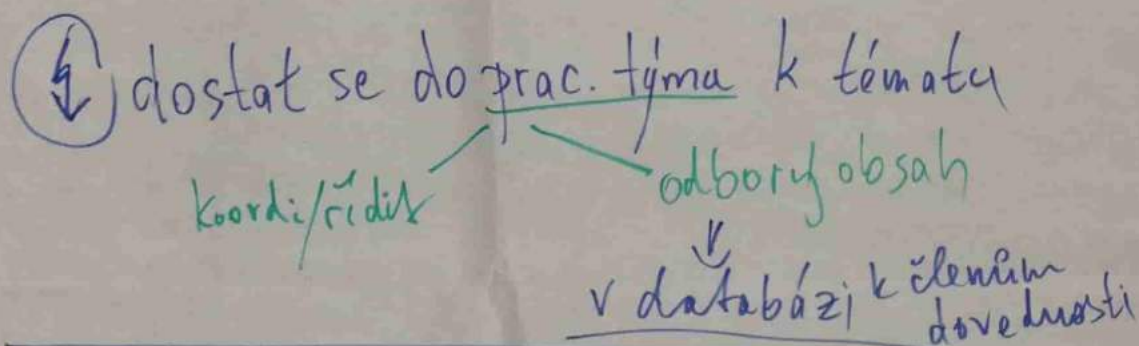 dostat se do prac. týma k tématu
koordi/řídit
odborný obsah
v databázi k členům
dovednosti